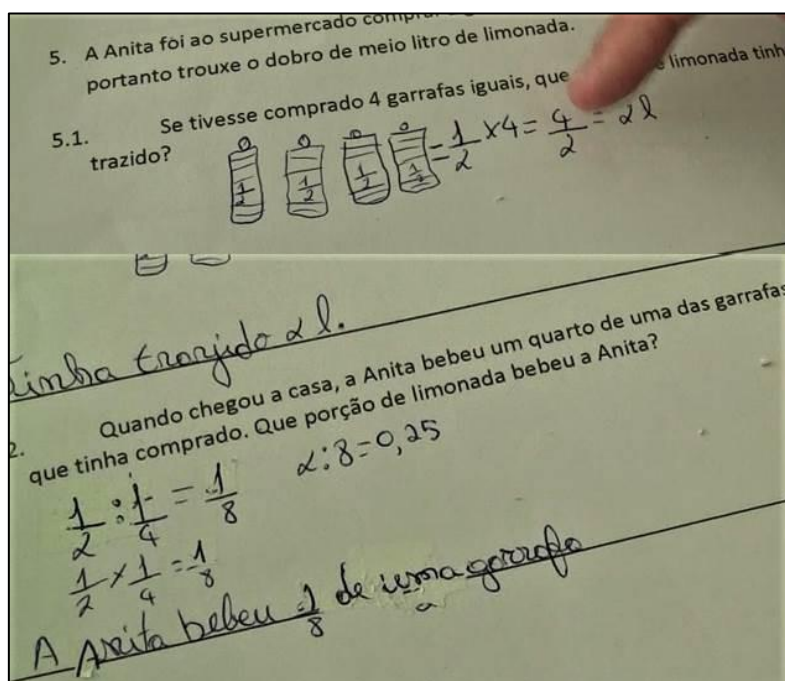 5. A Anita foi ao supermercado
portanto trouxe o dobro de meio litro de limonada.
5.1. Se tivesse comprado 4 garrafas iguais, que limonada tinh
trazido?
1/2 1/2 1/2 1/2 = 1/2 × 4 = 4/2 = 2 l
Tinha tronjido 2 l.
2. Quando chegou a casa, a Anita bebeu um quarto de uma das garrafas
que tinha comprado. Que porção de limonada bebeu a Anita?
1/2 : 1/4 = 1/8 2:8=0,25
1/2 × 1/4 = 1/8
A Anita bebeu 1/8 de uma garrafa